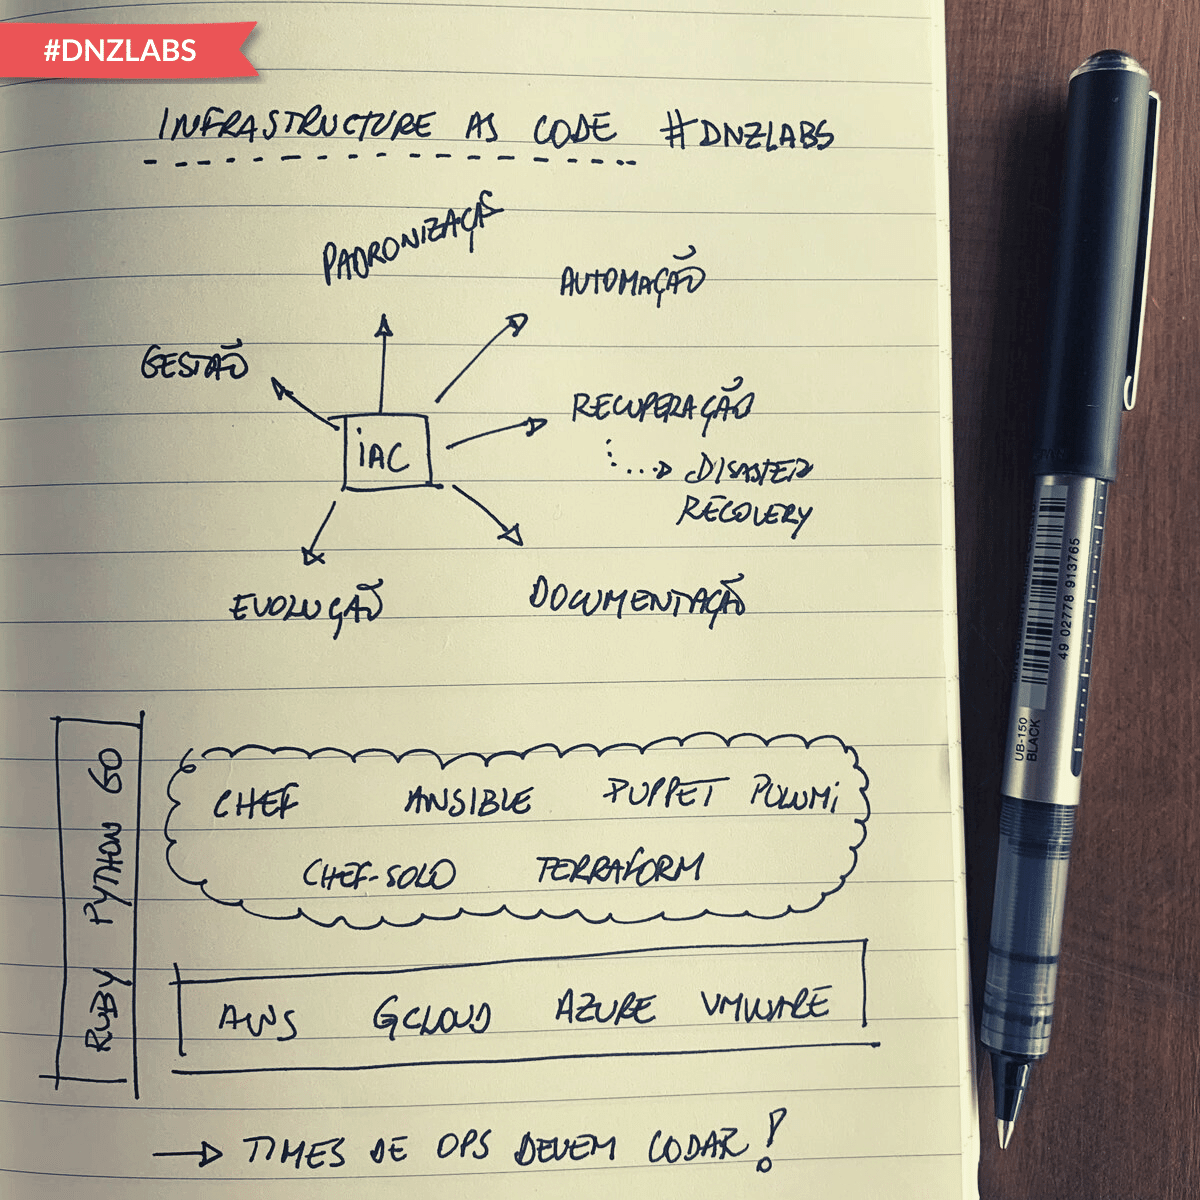 #DNZLABS
INFRASTRUCTURE AS CODE #DNZLABS
PADRONIZAÇÃO
AUTOMAÇÃO
GESTÃO
RECUPERAÇÃO
IAC
DISASTER
RECOVERY
EVOLUÇÃO
DOCUMENTAÇÃO
RUBY PYTHON GO
CHEF ANSIBLE PUPPET PULUMI
CHEF-SOLO TERRAFORM
AWS GCLOUD AZURE VMWARE
→ TIMES DE OPS DEVEM CODAR!
49 02778 913765
UB-150
BLACK